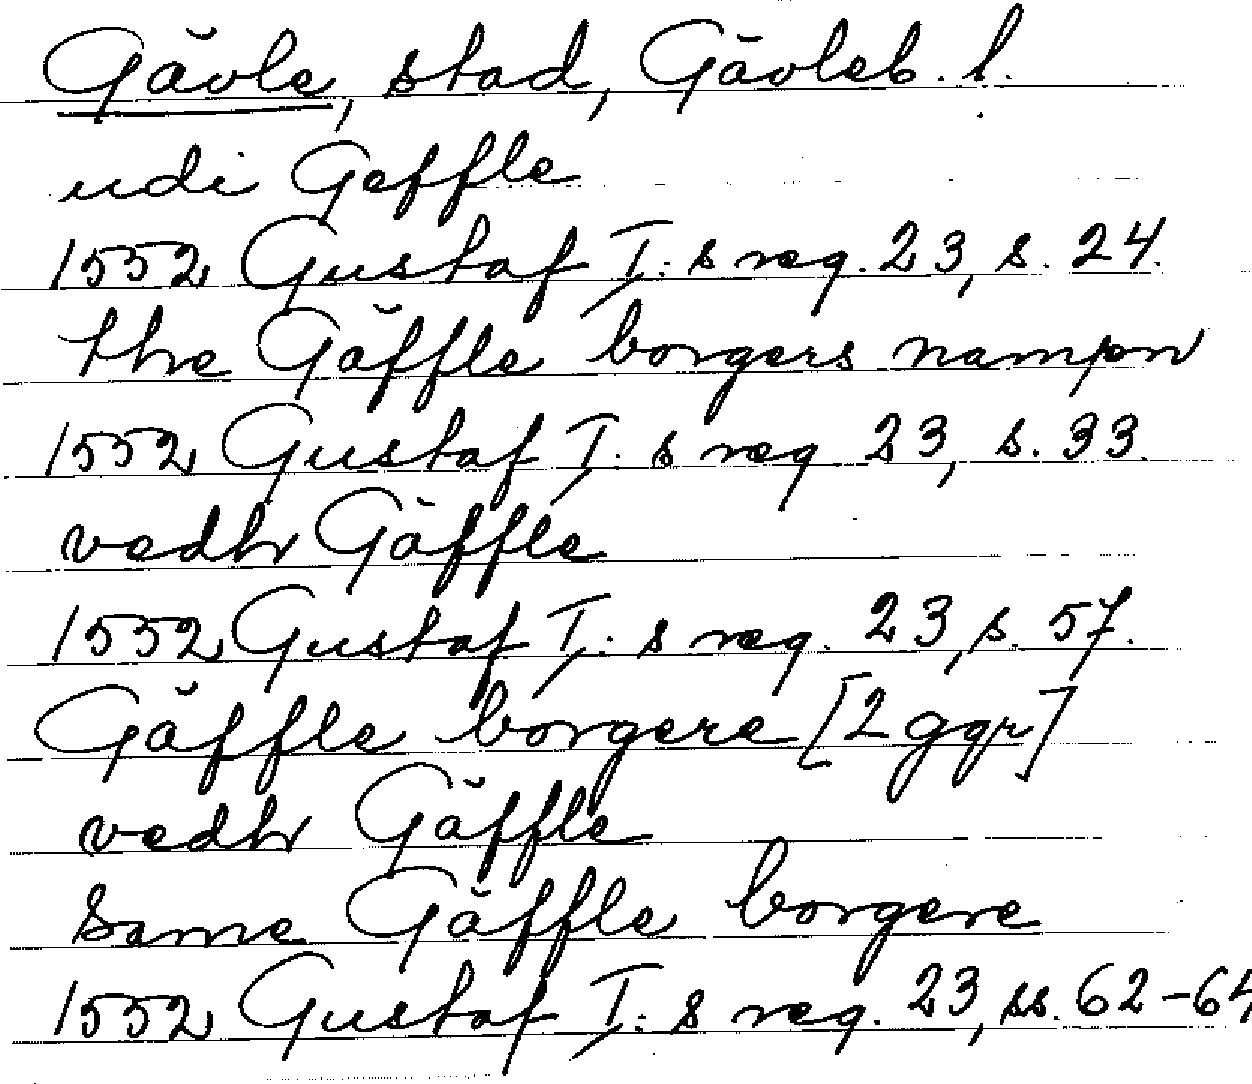 Gävle, stad, Gävleb. l.
udi Geffle
1552 Gustaf I: s reg. 23, s. 24.
the Gäffle borgers nampn
1552 Gustaf I: s reg 23, s. 33.
vedh Gäffle
1552 Gustaf I: s reg. 23, s. 57.
Gäffle borgere [2 ggr]
vedh Gäffle
Same Gäffle borgere
1552 Gustaf I: s reg. 23, ss. 62-64